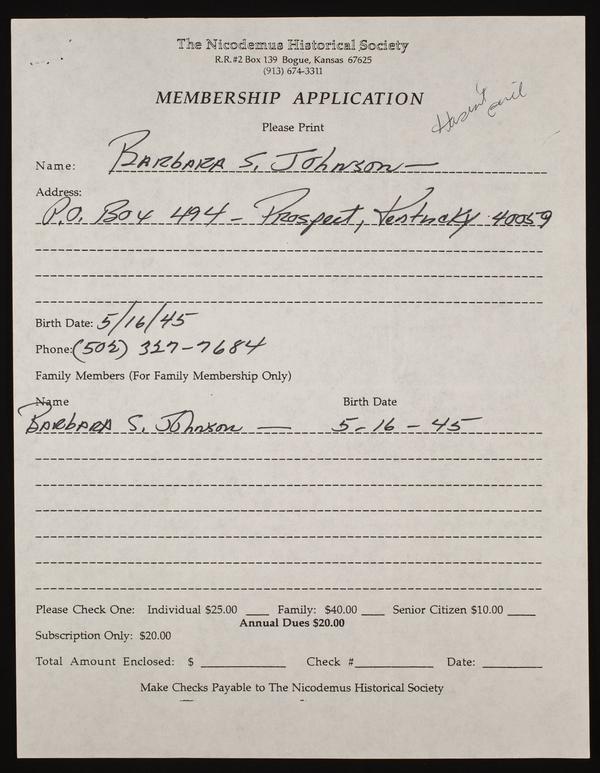 The Nicodemus Historical Society
R.R.#2 Box 139 Bogue, Kansas 67625
(913) 674-3311
MEMBERSHIP APPLICATION
Hasn't
Please Print
Name: Barbara S. Johnson —
Address:
P.O. Box 494 - Prospect, Kentucky 40059
Birth Date: 5/16/45
Phone: (502) 327-7684
Family Members (For Family Membership Only)
Name Birth Date
Barbara S. Johnson — 5-16-45
Please Check One: Individual $25.00 ___ Family: $40.00 ___ Senior Citizen $10.00 ___
Annual Dues $20.00
Subscription Only: $20.00
Total Amount Enclosed: $ ___ Check # ___ Date: ___
Make Checks Payable to The Nicodemus Historical Society